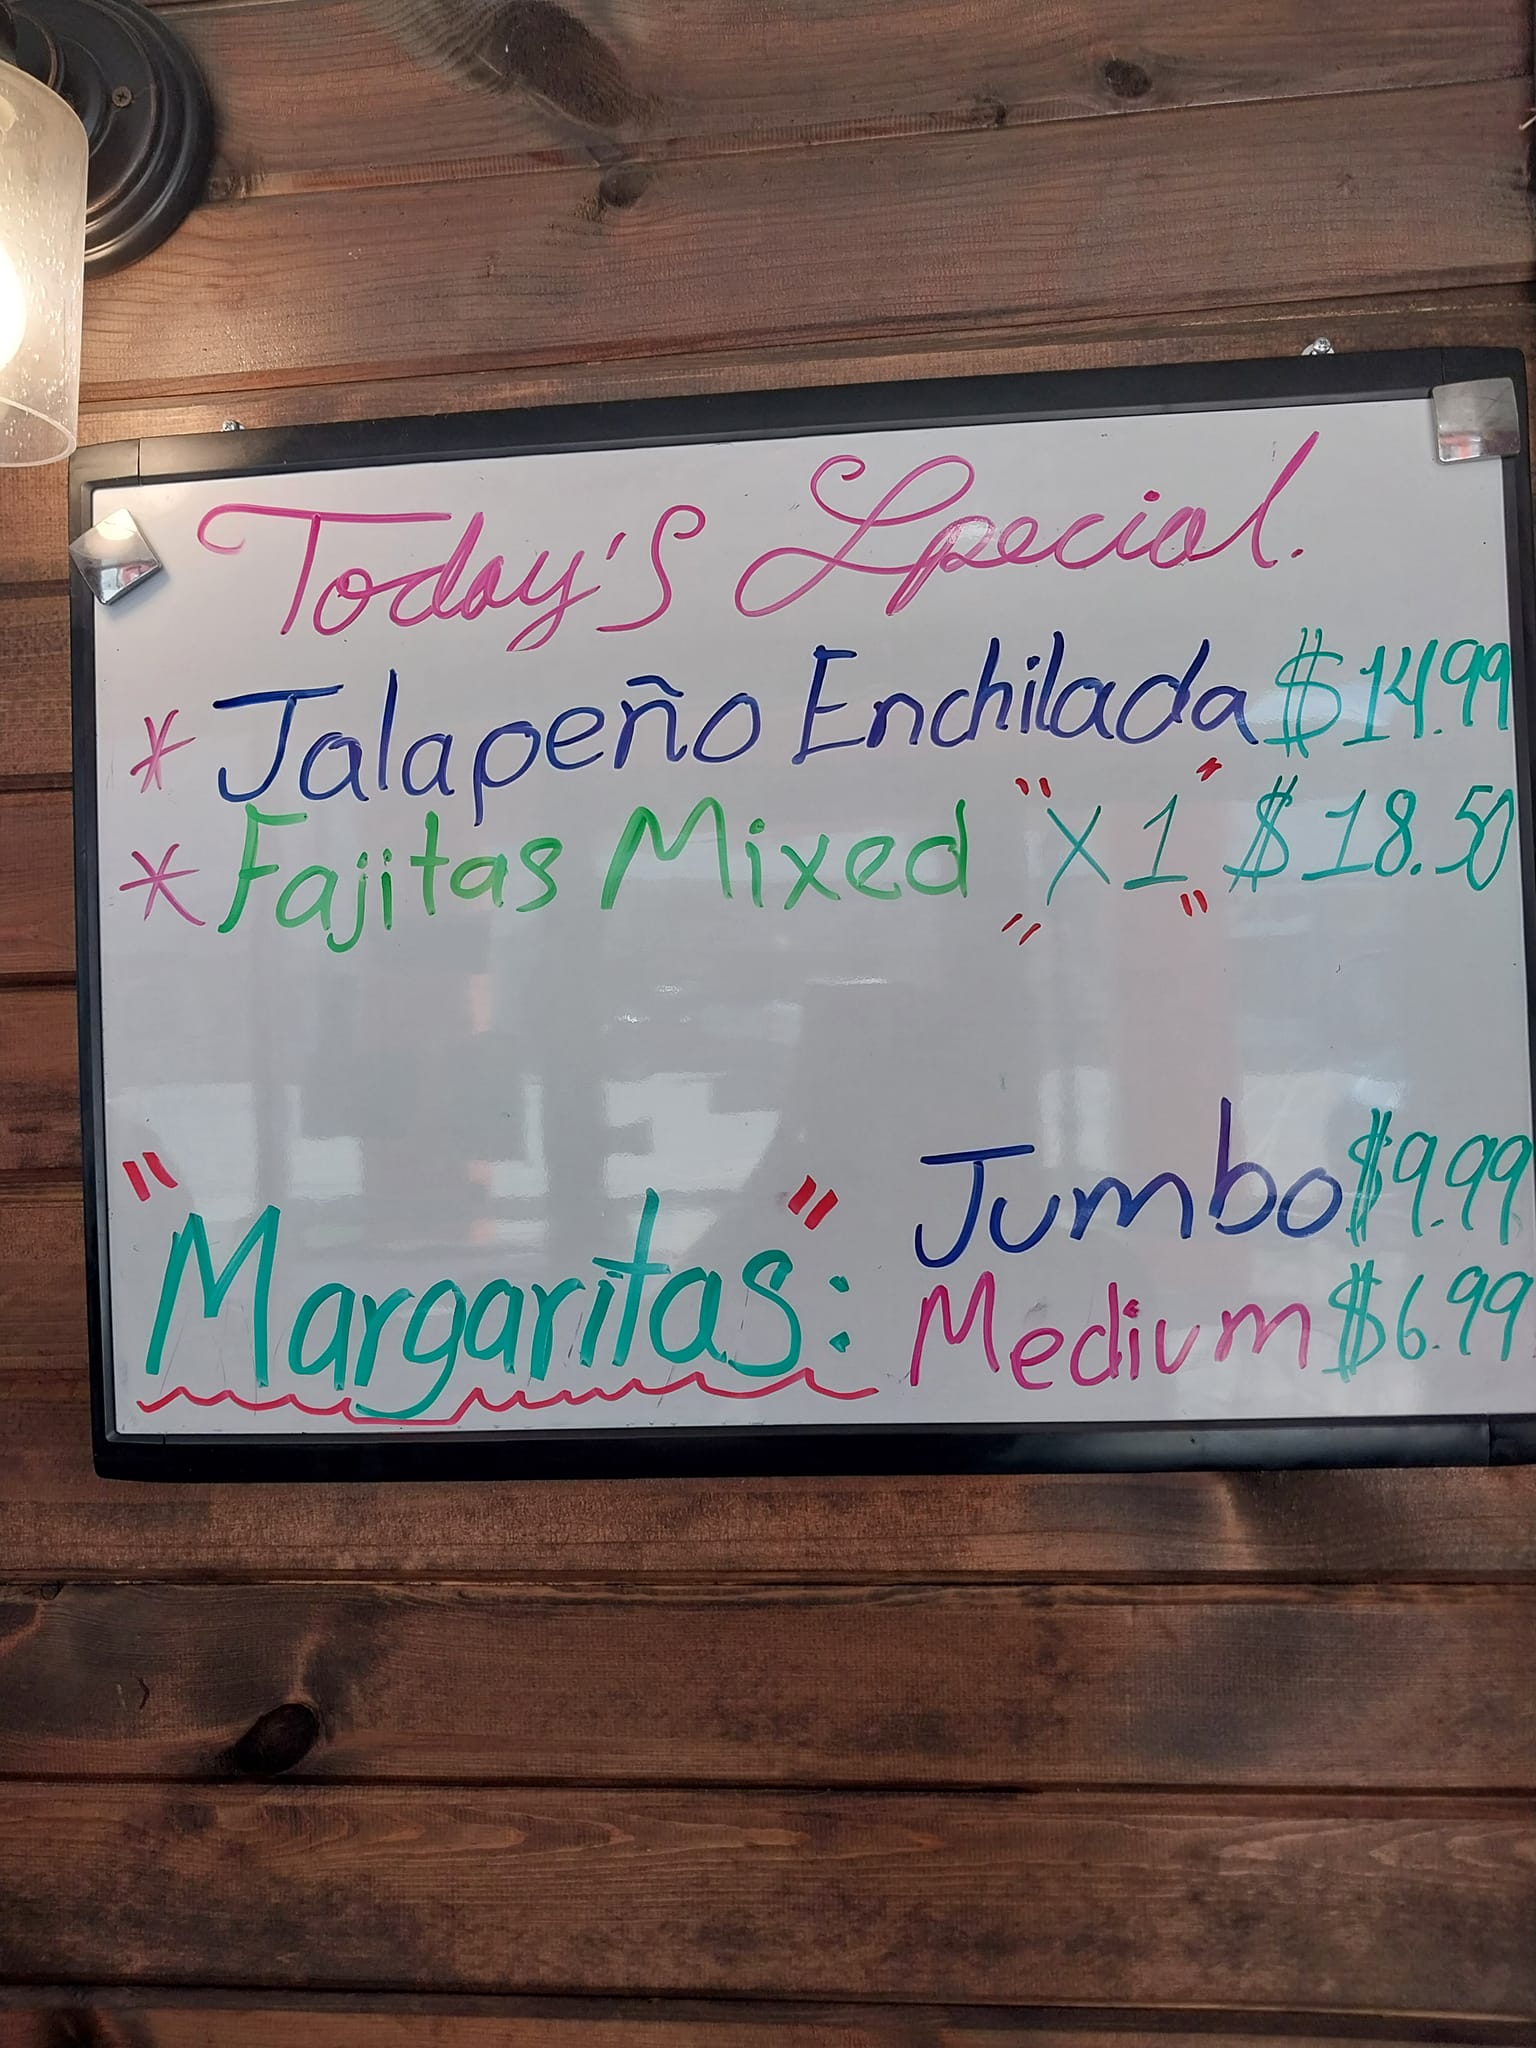 Today's Special.
* Jalapeño Enchilada $14.99
* Fajitas Mixed "X1" $18.50
"Margaritas":
Jumbo $9.99
Medium $6.99